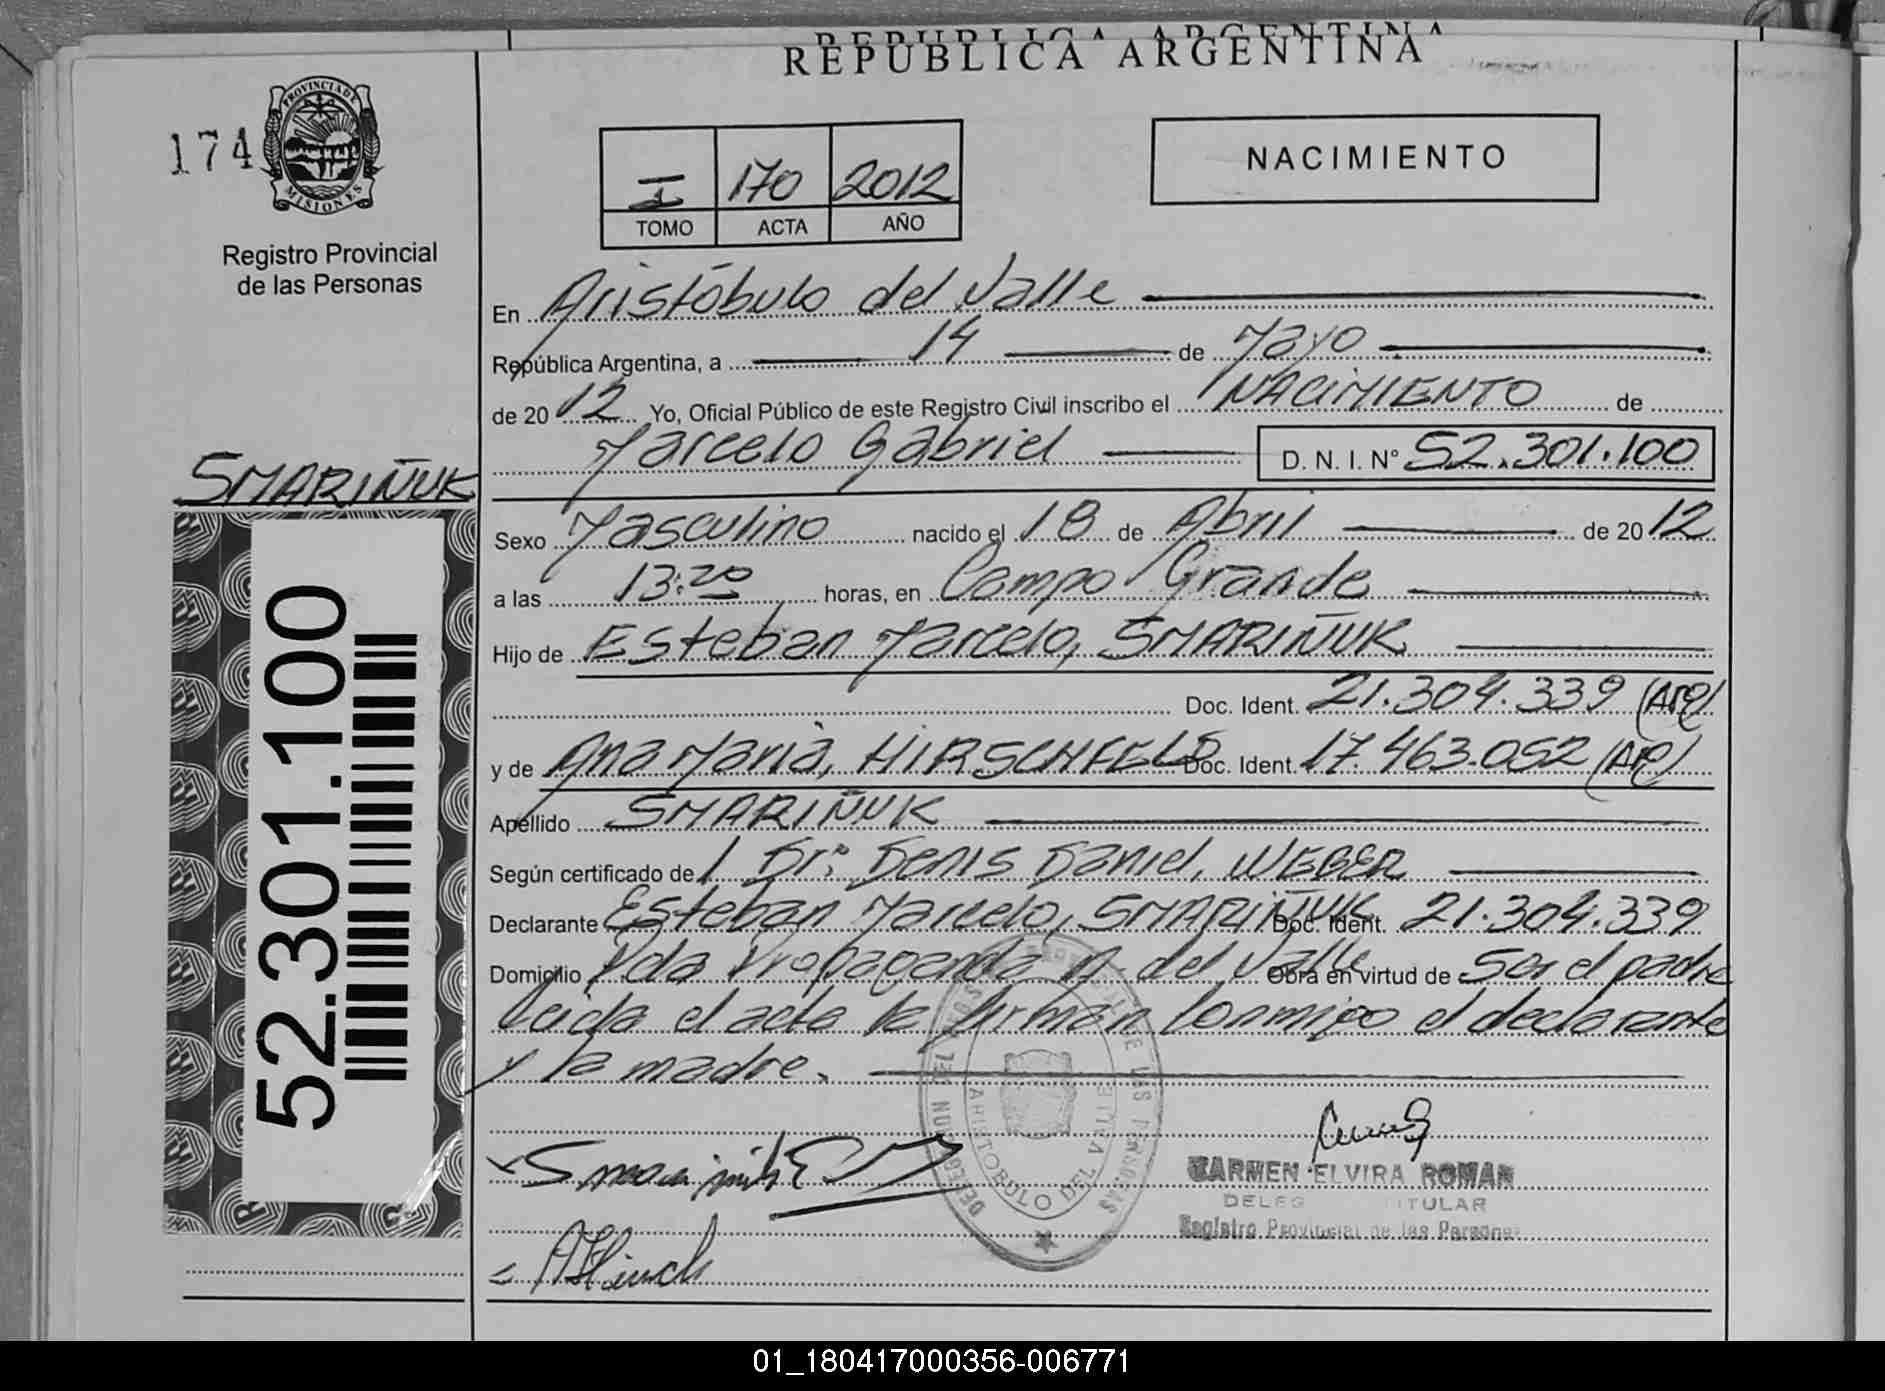 REPUBLICA ARGENTINA
REPUBLICA ARGENTINA
174
PROVINCIA DE
MISIONES
Registro Provincial
de las Personas
I 170 2012
TOMO ACTA AÑO
NACIMIENTO
En Aristóbulo del Valle
República Argentina, a 14 de Mayo
de 2012 Yo, Oficial Público de este Registro Civil inscribo el NACIMIENTO de
Marcelo Gabriel D. N. I. N° 52.301.100
SMARIÑUK
52.301.100
Sexo Masculino nacido el 18 de Abril de 2012
a las 13:20 horas, en Campo Grande
Hijo de Esteban Marcelo, SMARIÑUK
Doc. Ident. 21.304.339 (ARG)
y de Ana María, HIRSCHFELD Doc. Ident. 17.463.052 (ARG)
Apellido SMARIÑUK
Según certificado de Dr. Denis Daniel, WEBER
Declarante Esteban Marcelo, SMARIÑUK Doc. Ident. 21.304.339
Domicilio Pda Propaganda A. del Valle Obra en virtud de Ser el padre
Leída el acta la firman Conmigo el declarante
y la madre.
ARISTOBULO DEL VALLE
CARMEN ELVIRA ROMAN
TITULAR
Registro Provincial de las Personas
01_180417000356-006771